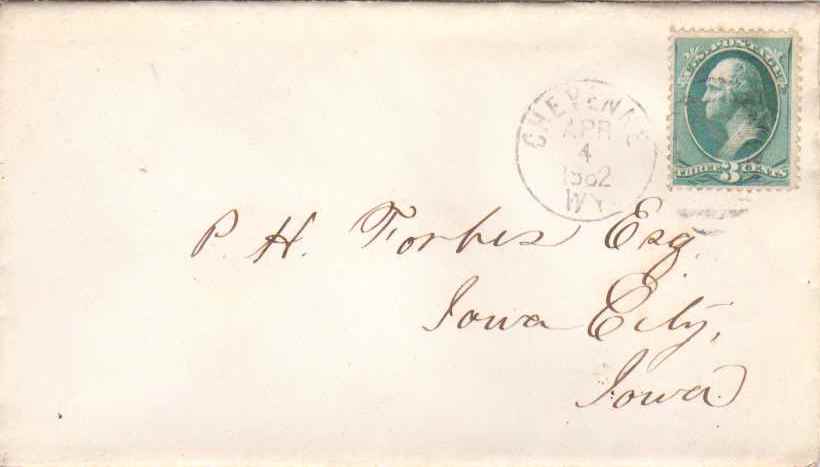 U.S. POSTAGE
THREE 3 CENTS
CHEYENNE
APR
4
1882
WY.
P. H. Forbes Esq.
Iowa City,
Iowa